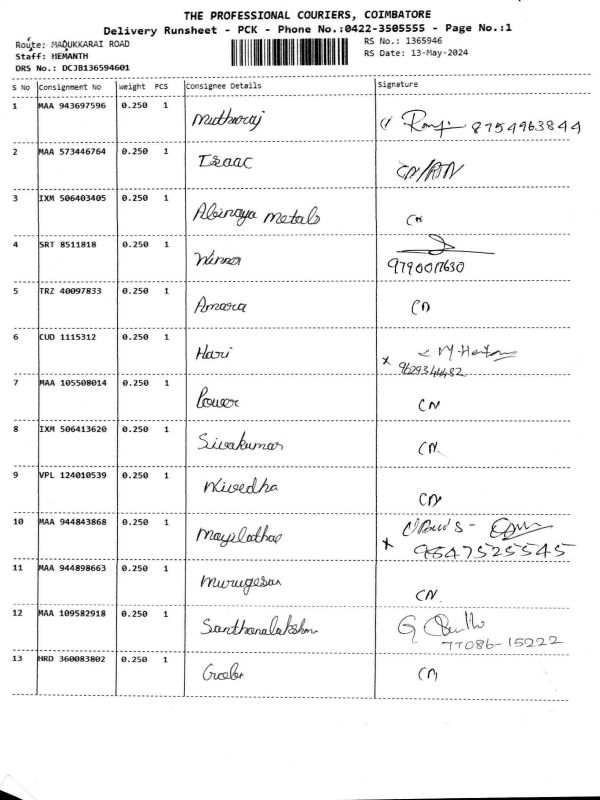 THE PROFESSIONAL COURIERS, COIMBATORE
Delivery Runsheet - PCK - Phone No.:0422-3505555 - Page No.:1
Route: MADUKKARAI ROAD
RS No.: 1365946
Staff: HEMANTH
RS Date: 13-May-2024
DRS No.: DCJB136594601
S No Consignment No Weight PCS Consignee Details Signature
1 MAA 943697596 0.250 1 Muthuraj 8754963844
2 MAA 573446764 0.250 1 Isaac CN/RTN
3 IXM 506403405 0.250 1 Abinaya metals CN
4 SRT 8511818 0.250 1 Winner
9790017630
5 TRZ 40097833 0.250 1 Amara CN
6 CUD 1115312 0.250 1 Hari
7 MAA 105508014 0.250 1 Power CN
8 IXM 506413620 0.250 1 Sivakumar CN.
9 VPL 124010539 0.250 1 Nivedha CN
10 MAA 944843868 0.250 1
9847525545
11 MAA 944898663 0.250 1 Murugesan CN.
12 MAA 109582918 0.250 1 G
77086-15222
13 HRD 360083802 0.250 1 CN